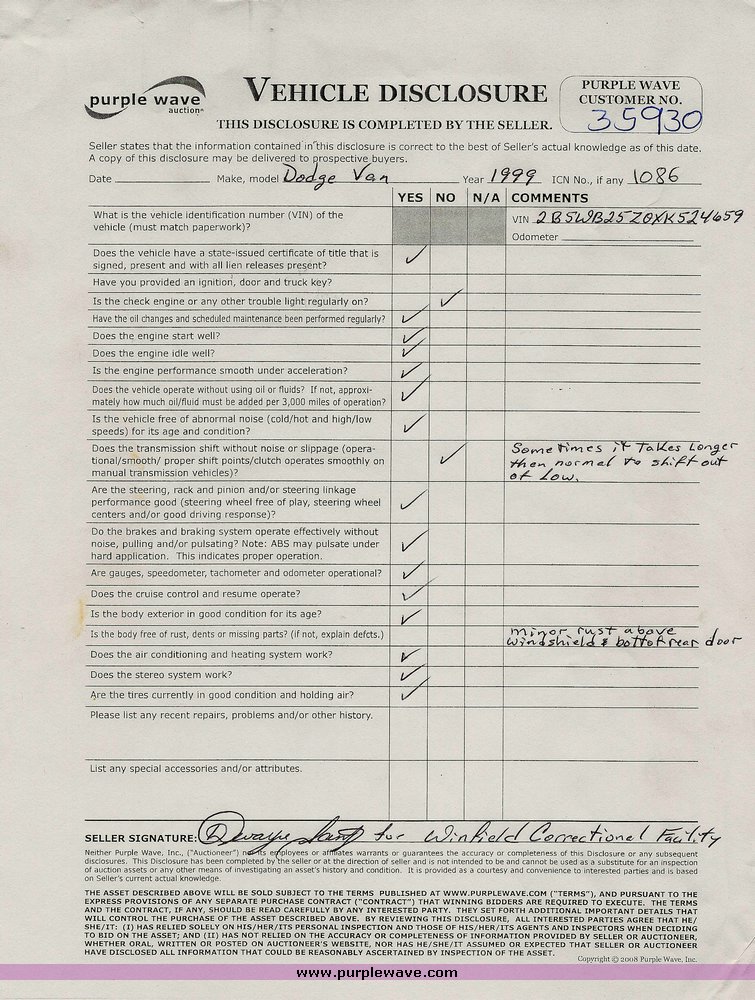 purple wave
auction
VEHICLE DISCLOSURE
THIS DISCLOSURE IS COMPLETED BY THE SELLER.
PURPLE WAVE
CUSTOMER NO.
35930
Seller states that the information contained in this disclosure is correct to the best of Seller's actual knowledge as of this date.
A copy of this disclosure may be delivered to prospective buyers.
Date Make, model Dodge Van Year 1999 ICN No., if any 1086
YES NO N/A COMMENTS
What is the vehicle identification number (VIN) of the
vehicle (must match paperwork)?
VIN 2B5WB25Z0XK524659
Odometer
Does the vehicle have a state-issued certificate of title that is
signed, present and with all lien releases present? ✓
Have you provided an ignition, door and truck key?
Is the check engine or any other trouble light regularly on? ✓
Have the oil changes and scheduled maintenance been performed regularly? ✓
Does the engine start well? ✓
Does the engine idle well? ✓
Is the engine performance smooth under acceleration? ✓
Does the vehicle operate without using oil or fluids? If not, approxi-
mately how much oil/fluid must be added per 3,000 miles of operation? ✓
Is the vehicle free of abnormal noise (cold/hot and high/low
speeds) for its age and condition? ✓
Does the transmission shift without noise or slippage (opera-
tional/smooth/ proper shift points/clutch operates smoothly on
manual transmission vehicles)? ✓
Sometimes it Takes Longer
then normal to shift out
of Low.
Are the steering, rack and pinion and/or steering linkage
performance good (steering wheel free of play, steering wheel
centers and/or good driving response)? ✓
Do the brakes and braking system operate effectively without
noise, pulling and/or pulsating? Note: ABS may pulsate under
hard application. This indicates proper operation. ✓
Are gauges, speedometer, tachometer and odometer operational? ✓
Does the cruise control and resume operate? ✓
Is the body exterior in good condition for its age? ✓
Is the body free of rust, dents or missing parts? (if not, explain defcts.)
minor rust above
windshield & bott of rear door
Does the air conditioning and heating system work? ✓
Does the stereo system work? ✓
Are the tires currently in good condition and holding air? ✓
Please list any recent repairs, problems and/or other history.
List any special accessories and/or attributes.
SELLER SIGNATURE: Dwayne for Winfield Correctional Facility
Neither Purple Wave, Inc., ("Auctioneer") nor its employees or affiliates warrants or guarantees the accuracy or completeness of this Disclosure or any subsequent
disclosures. This Disclosure has been completed by the seller or at the direction of seller and is not intended to be and cannot be used as a substitute for an inspection
of auction assets or any other means of investigating an asset's history and condition. It is provided as a courtesy and convenience to interested parties and is based
on Seller's current actual knowledge.
THE ASSET DESCRIBED ABOVE WILL BE SOLD SUBJECT TO THE TERMS PUBLISHED AT WWW.PURPLEWAVE.COM ("TERMS"), AND PURSUANT TO THE
EXPRESS PROVISIONS OF ANY SEPARATE PURCHASE CONTRACT ("CONTRACT") THAT WINNING BIDDERS ARE REQUIRED TO EXECUTE. THE TERMS
AND THE CONTRACT, IF ANY, SHOULD BE READ CAREFULLY BY ANY INTERESTED PARTY. THEY SET FORTH ADDITIONAL IMPORTANT DETAILS THAT
WILL CONTROL THE PURCHASE OF THE ASSET DESCRIBED ABOVE. BY REVIEWING THIS DISCLOSURE, ALL INTERESTED PARTIES AGREE THAT HE/
SHE/IT: (I) HAS RELIED SOLELY ON HIS/HER/ITS PERSONAL INSPECTION AND THOSE OF HIS/HER/ITS AGENTS AND INSPECTORS WHEN DECIDING
TO BID ON THE ASSET; AND (II) HAS NOT RELIED ON THE ACCURACY OR COMPLETENESS OF INFORMATION PROVIDED BY SELLER OR AUCTIONEER,
WHETHER ORAL, WRITTEN OR POSTED ON AUCTIONEER'S WEBSITE, NOR HAS HE/SHE/IT ASSUMED OR EXPECTED THAT SELLER OR AUCTIONEER
HAVE DISCLOSED ALL INFORMATION THAT COULD BE REASONABLY ASCERTAINED BY INSPECTION OF THE ASSET.
Copyright © 2008 Purple Wave, Inc.
www.purplewave.com